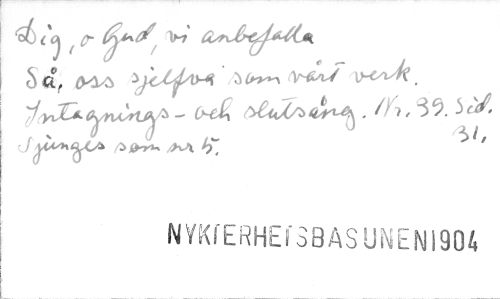 Dig, o Gud, vi anbefalla
Så, oss sjelfva som vårt verk.
Intagnings- och slutsång. Nr. 39. Sid. 31.
Sjunges som nr 5.
NYKTERHETSBASUNEN1904